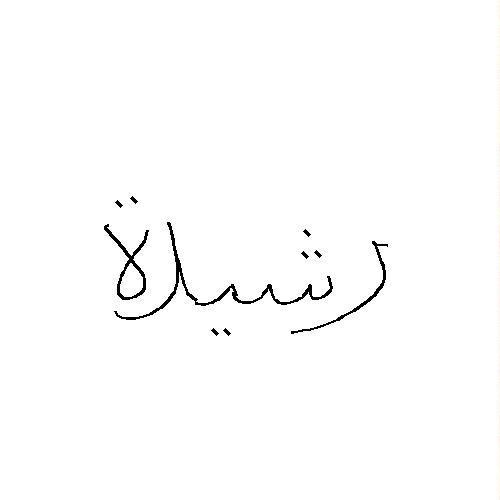 رشيدة